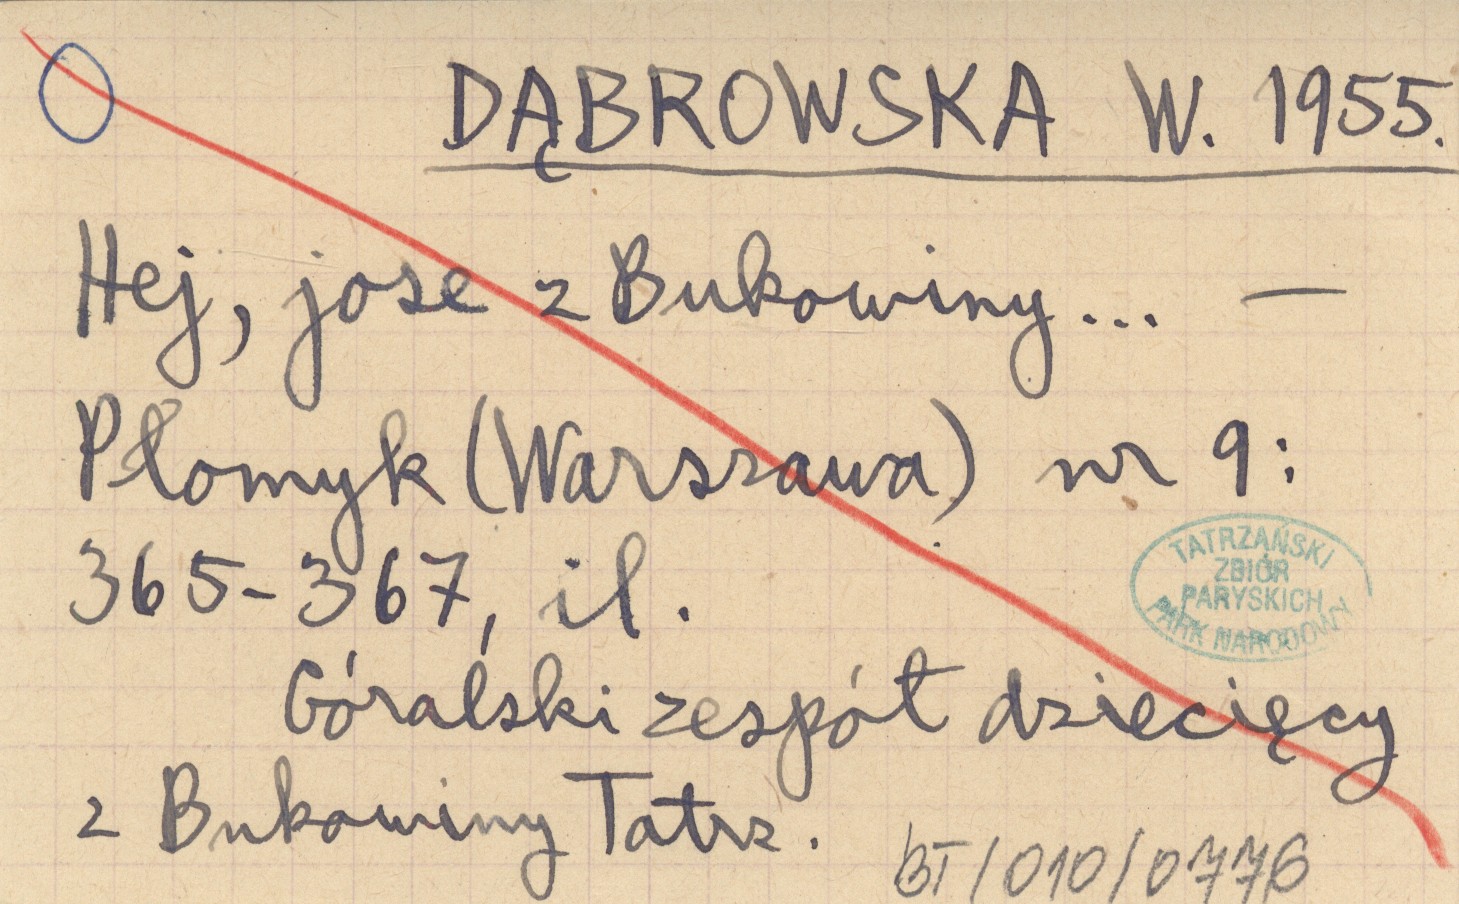 DĄBROWSKA W. 1955.
Hej, jose z Bukowiny... —
Płomyk (Warszawa) nr 9:
365-367, il.
TATRZAŃSKI
ZBIÓR
PARYSKICH
PARK NARODOWY
Góralski zespół dziecięcy
z Bukowiny Tatrz.
BT/010/0776